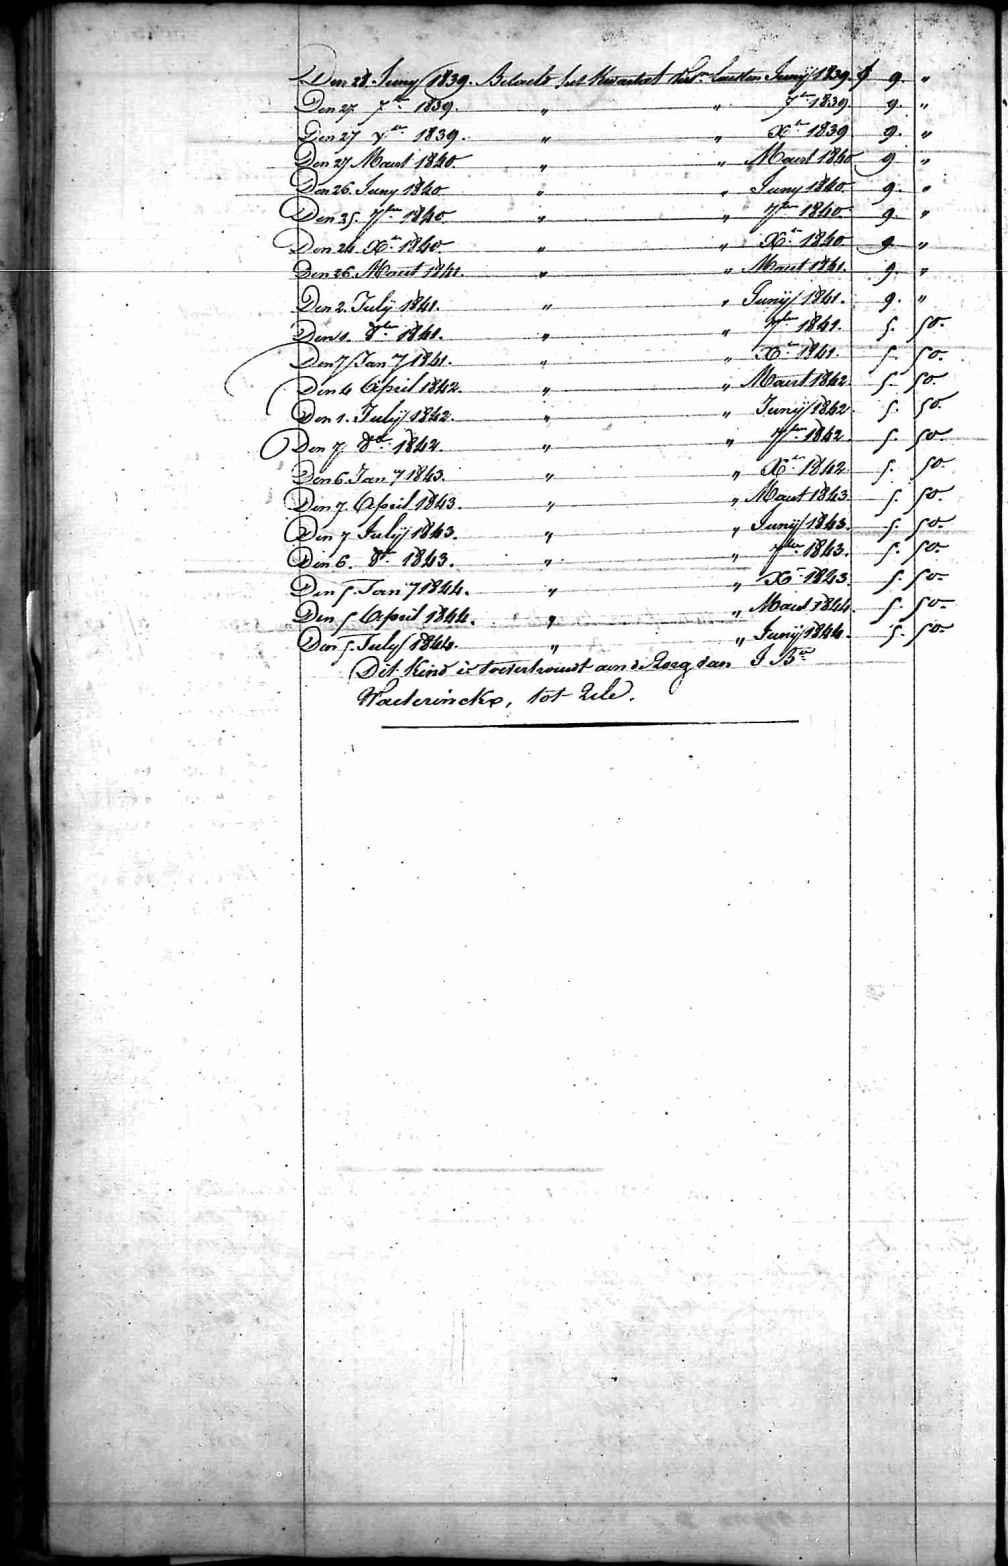 Den 28 Juny 1839. Betaelt het Kwartael laetsten Junij 1839 f 9. "
Den 27. 7ber 1839. " " 7ber 1839 9. "
Den 27 1839. " " Xber 1839 9. "
Den 27 Maart 1840 " " Maart 1840 9 "
Den 26. Juny 1840 " " Juny 1840 9. "
Den 25. 7ber 1840 " " 7ber 1840 9. "
Den 24. Xber 1840 " " Xber 1840 9 "
Den 26. Maert 1841. " " Maert 1841. 9. "
Den 2. July 1841. " " Junij 1841. 9. "
Den 1. 8ber 1841. " " 7ber 1841. 5. 50.
Den 7 Jan 7 1841. " " Xber 1841. 5. 50.
Den 4 April 1842. " " Maert 1842 5. 50.
Den 1. Julij 1842. " " Junij 1842 5. 50.
Den 7. 8ber 1842. " " 7ber 1842. 5. 50.
Den 6. Jan 7 1843. " " Xber 1842 5. 50.
Den 7. April 1843. " " Maert 1843 5. 50.
Den 7 Julij 1843. " " Junij 1843. 5. 50.
Den 6. 8ber 1843. " " 7ber 1843. 5. 50
Den 5. Jan 7 1844. " " Xber 1843 5. 50
Den 5 April 1844. " " Maert 1844. 5. 50
Den 5. July 1844. " " Junij 1844. 5. 50
Dit Kind is toevertrouwt aen de Zorg van J Bte
Waeterinckx, tot Zele.